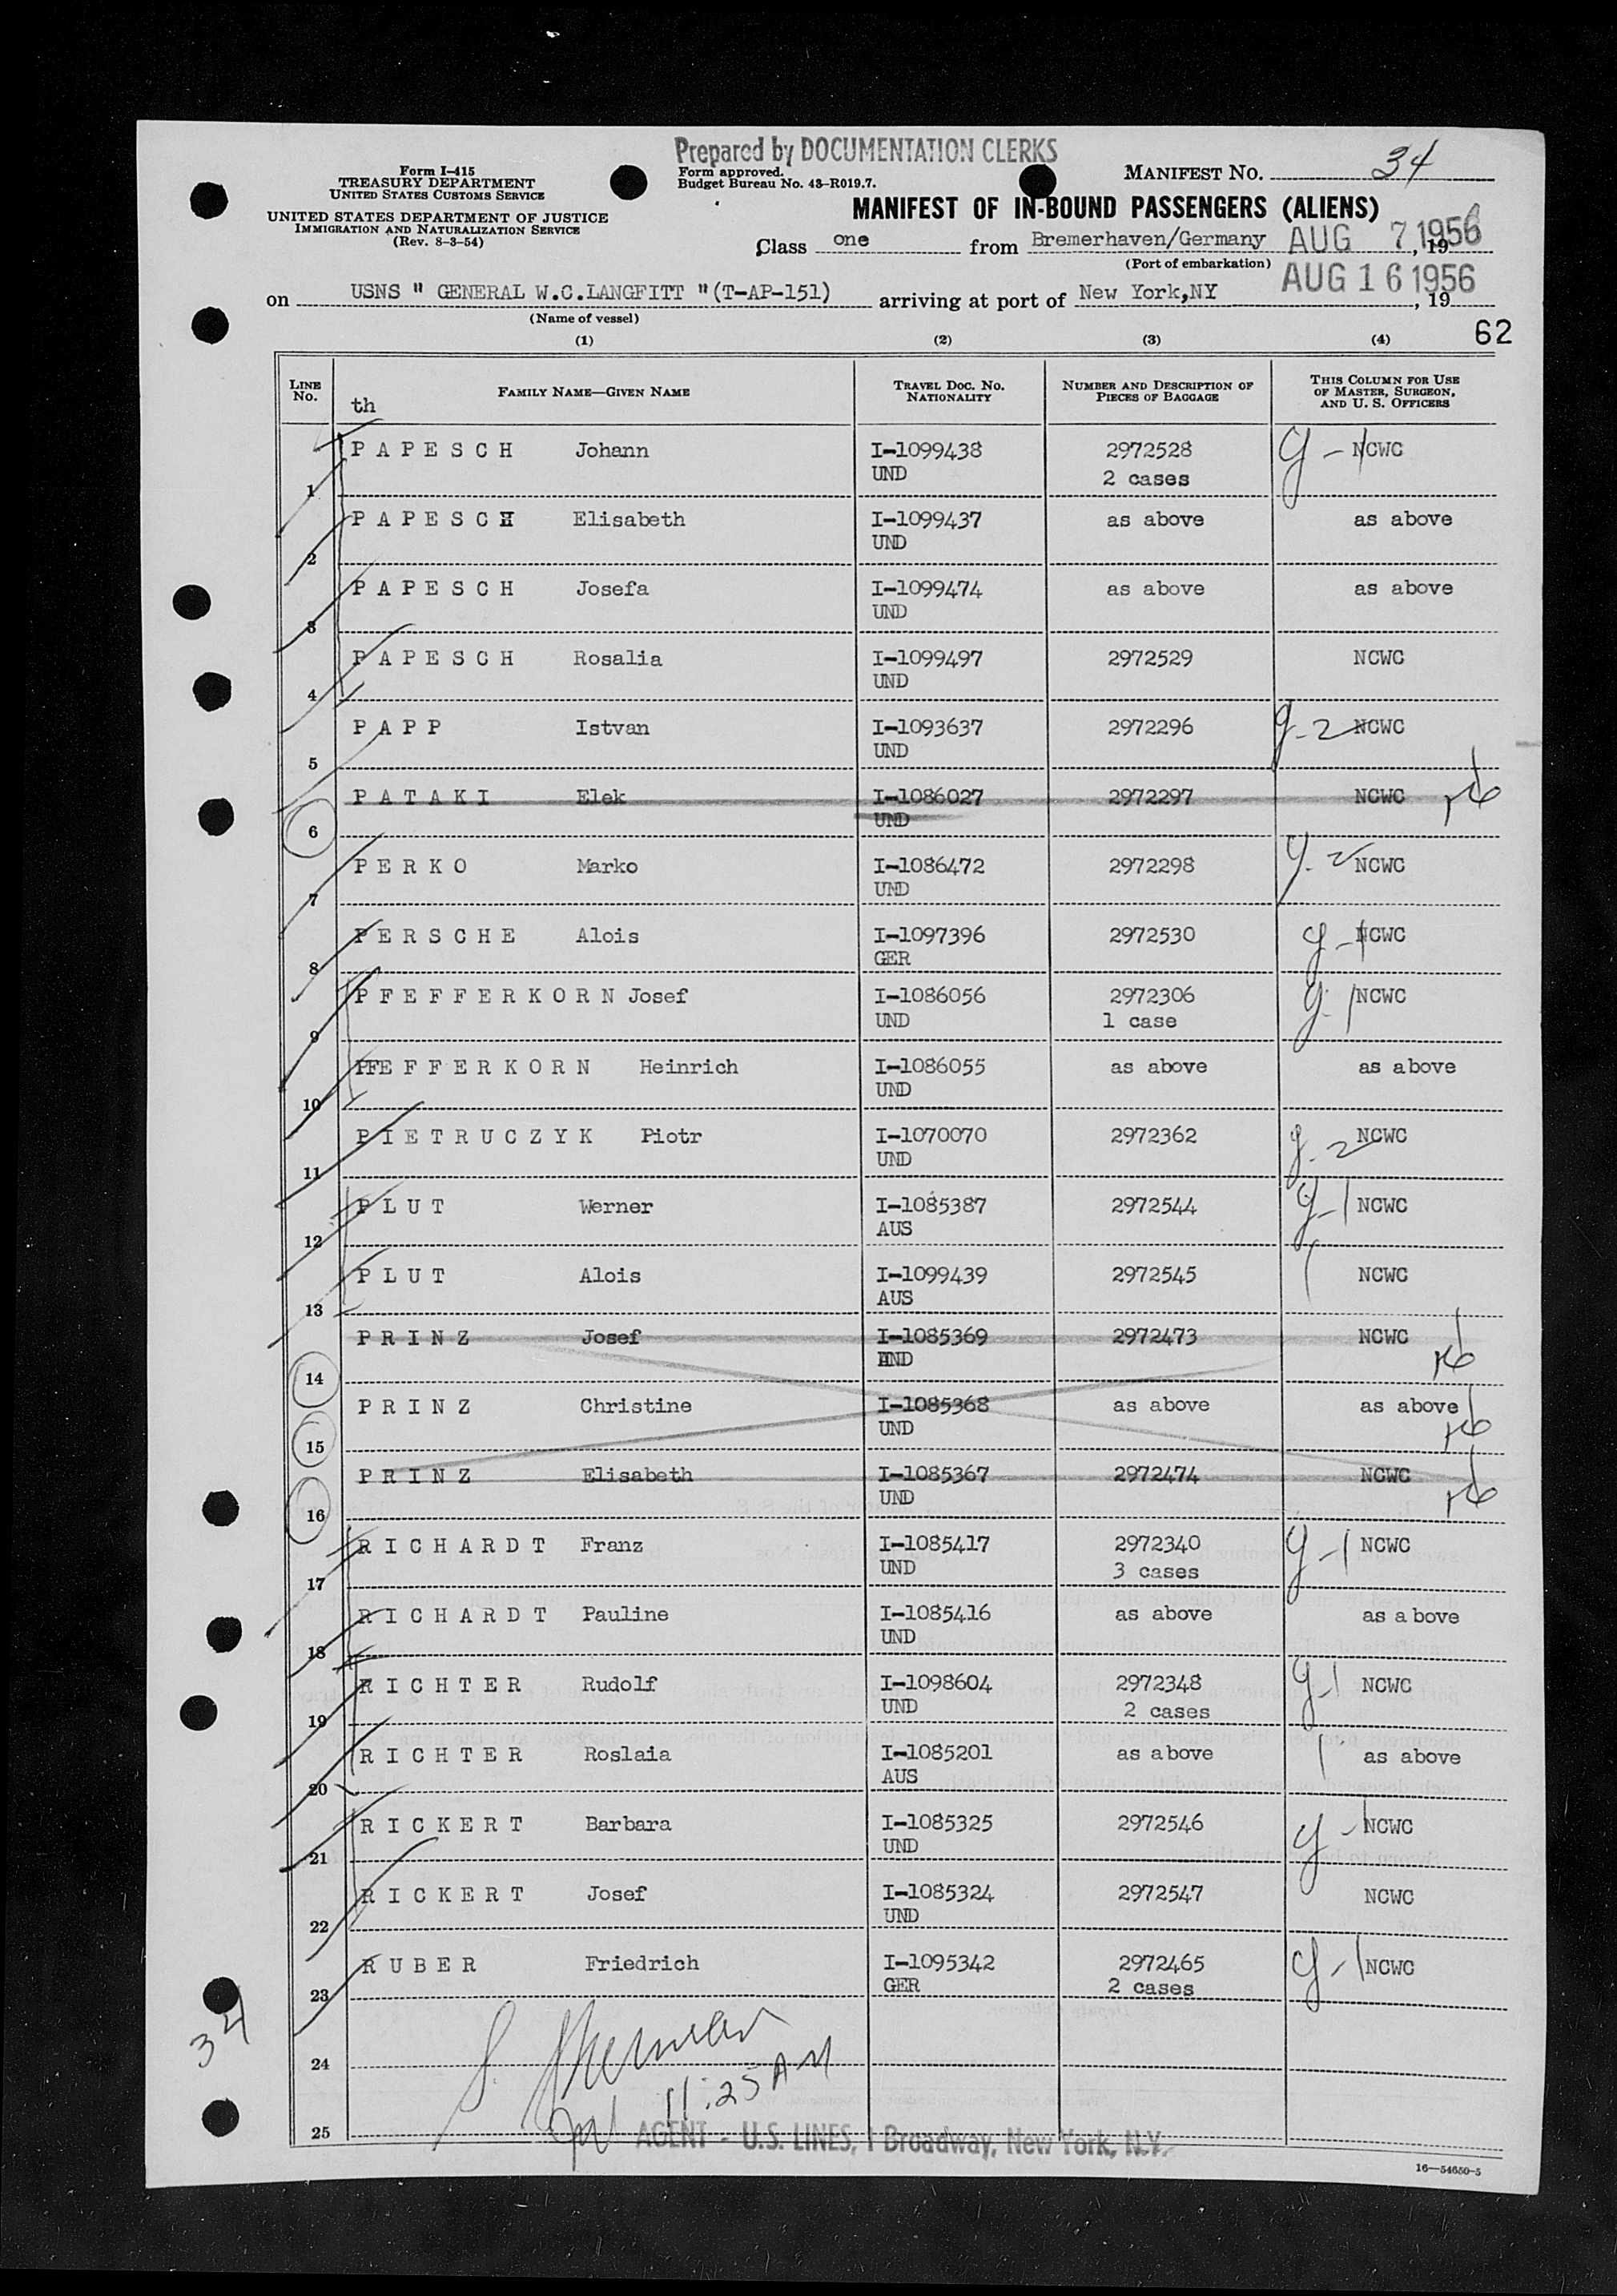 Prepared by DOCUMENTATION CLERKS
Form I-415
TREASURY DEPARTMENT
UNITED STATES CUSTOMS SERVICE
UNITED STATES DEPARTMENT OF JUSTICE
IMMIGRATION AND NATURALIZATION SERVICE
(Rev. 8-3-54)
Form approved.
Budget Bureau No. 43-R019.7.
MANIFEST NO. 34
MANIFEST OF IN-BOUND PASSENGERS (ALIENS)
Class one from Bremerhaven/Germany AUG 7 1956, 19
(Port of embarkation)
on USNS " GENERAL W.C.LANGFITT "(T-AP-151) arriving at port of New York,NY AUG 16 1956, 19
(Name of vessel)
62
(1) (2) (3) (4)
LINE NO. FAMILY NAME—GIVEN NAME TRAVEL DOC. NO. NATIONALITY NUMBER AND DESCRIPTION OF PIECES OF BAGGAGE THIS COLUMN FOR USE OF MASTER, SURGEON, AND U. S. OFFICERS
th
P A P E S C H Johann I-1099438 2972528 g - 1 NCWC
1 UND 2 cases
P A P E S C H Elisabeth I-1099437 as above as above
2 UND
P A P E S C H Josefa I-1099474 as above as above
3 UND
P A P E S C H Rosalia I-1099497 2972529 NCWC
4 UND
P A P P Istvan I-1093637 2972296 g - 2 NCWC
5 UND
P A T A K I Elek I-1086027 2972297 NCWC
6 UND
P E R K O Marko I-1086472 2972298 g - 2 NCWC
7 UND
P E R S C H E Alois I-1097396 2972530 g - 1 NCWC
8 GER
P F E F F E R K O R N Josef I-1086056 2972306 g - 1 NCWC
9 UND 1 case
PFE F F E R K O R N Heinrich I-1086055 as above as above
10 UND
P I E T R U C Z Y K Piotr I-1070070 2972362 g - 2 NCWC
11 UND
P L U T Werner I-1085387 2972544 g - 1 NCWC
12 AUS
P L U T Alois I-1099439 2972545 NCWC
13 AUS
P R I N Z Josef I-1085369 2972473 NCWC
14 UND
P R I N Z Christine I-1085368 as above as above
15 UND
P R I N Z Elisabeth I-1085367 2972474 NCWC
16 UND
R I C H A R D T Franz I-1085417 2972340 g - 1 NCWC
17 UND 3 cases
R I C H A R D T Pauline I-1085416 as above as above
18 UND
R I C H T E R Rudolf I-1098604 2972348 g - 1 NCWC
19 UND 2 cases
R I C H T E R Roslaia I-1085201 as above as above
20 AUS
R I C K E R T Barbara I-1085325 2972546 g - 1 NCWC
21 UND
R I C K E R T Josef I-1085324 2972547 NCWC
22 UND
R U B E R Friedrich I-1095342 2972465 g - 1 NCWC
23 GER 2 cases
34
24
11:25 AM
25 AGENT - U.S. LINES, 1 Broadway, New York, N.Y.
16—54650-5